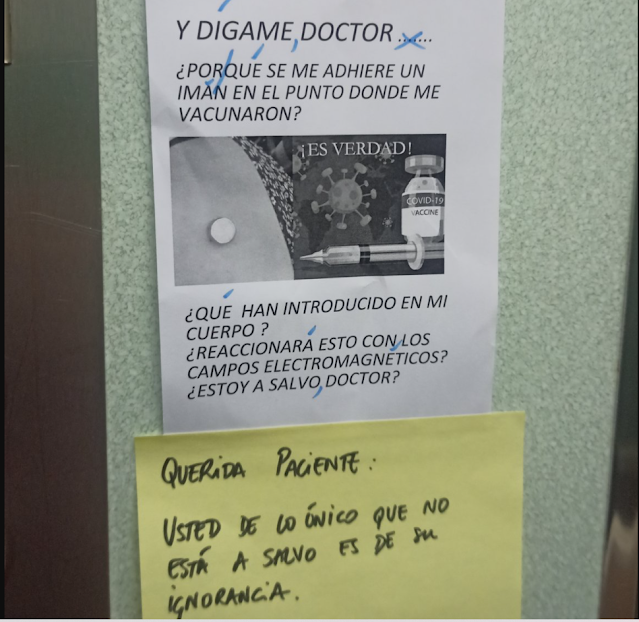 Y DIGAME, DOCTOR .......
¿PORQUÉ SE ME ADHIERE UN
IMÁN EN EL PUNTO DONDE ME
VACUNARON?
¡ES VERDAD!
COVID-19
VACCINE
¿QUÉ HAN INTRODUCIDO EN MI
CUERPO ?
¿REACCIONARÁ ESTO CON LOS
CAMPOS ELECTROMAGNÉTICOS?
¿ESTOY A SALVO, DOCTOR?
QUERIDA PACIENTE:
USTED DE LO ÚNICO QUE NO
ESTÁ A SALVO ES DE SU
IGNORANCIA.